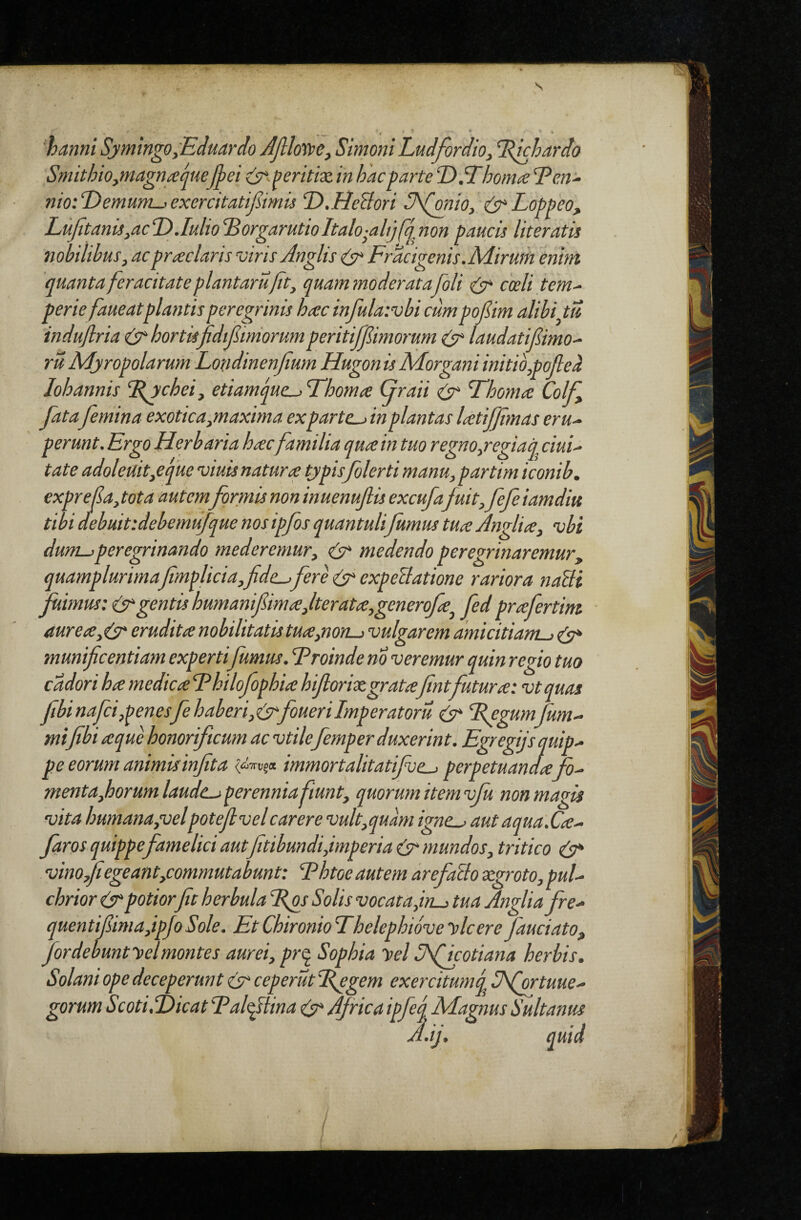 hanni Symingo, Eduardo Aſtlowe, Simoni Ludfordio, Richardo
Smithio, magnæque ſpei & peritiæ in hac parte D. Thomæ Pen-
nio: Demum exercitatiſsimis D. Hectori Nonio, & Loppeo,
Luſitanis, ac D. Iulio Borgarutio Italo, alijſq; non paucis literatis
nobilibus, ac præclaris viris Anglis & Frācigenis. Mirum enim
quanta feracitate plantarū ſit, quam moderata ſoli & cœli tem-
perie faueat plantis peregrinis hæc inſula: vbi cùm paſsim alibi, tū
induſtria & hortis fidiſsimorum peritiſſimorum & laudatiſsimo-
rū Myropolarum Londinenſium Hugonis Morgani initiò, poſteà
Iohannis Rychei, etiamque Thomæ Graii & Thomæ Colf,
ſata ſemina exotica, maxima ex parte in plantas lætiſſimas eru-
perunt. Ergo Herbaria hæc familia quæ in tuo regno, regiaq; ciui-
tate adoleuit, eque viuis naturæ typis ſolerti manu, partim iconib.
expreſsa, tota autem formis non inuenuſtis excuſa fuit, ſeſe iamdiu
tibi debuit: debemuſque nos ipſos quantuli ſumus tuæ Angliæ, vbi
dum peregrinando mederemur, & medendo peregrinaremur,
quamplurima ſimplicia, fide ferè & expectatione rariora nacti
fuimus: & gentis humaniſsimæ, lteratæ, generoſæ, ſed præſertim
aureæ, & eruditæ nobilitatis tuæ, non vulgarem amicitiam &
munificentiam experti ſumus. Proinde nō veremur quin regio tuo
cādori hæ medicæ Philoſophiæ hiſtoriæ gratæ ſint futuræ: vt quas
ſibi naſci, penes ſe haberi, & foueri Imperatorū & Regum ſum-
mi ſibi æquè honorificum ac vtile ſemper duxerint. Egregijs quip-
pe eorum animis inſita ζώπυρα immortalitatiſve perpetuandæ fo-
menta, horum laude perennia fiunt, quorum item vſu non magis
vita humana, vel poteſt vel carere vult, quàm igne aut aqua. Cæ-
ſaros quippe famelici aut ſitibundi, imperia & mundos, tritico &
vino, ſi egeant, commutabunt: Phtoe autem arefacto ægroto, pul-
chrior & potior ſit herbula Ros Solis vocata, in tua Anglia fre-
quentiſsima, ipſo Sole. Et Chironio Thelephióve vlcere ſauciato,
ſordebunt vel montes aurei, prę Sophia vel Nicotiana herbis.
Solani ope deceperunt & ceperūt Regem exercitumq; Nortuue-
gorum Scoti. Dicat Palęſtina & Africa ipſeq; Magnus Sultanus
A.ij. quid